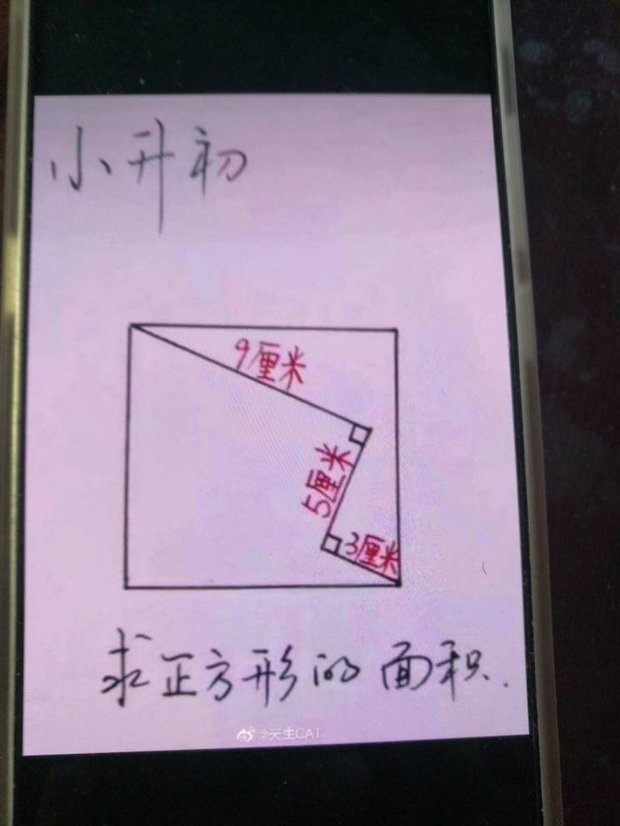 小升初
9厘米
5厘米
3厘米
求正方形的面积.
@天生CAT